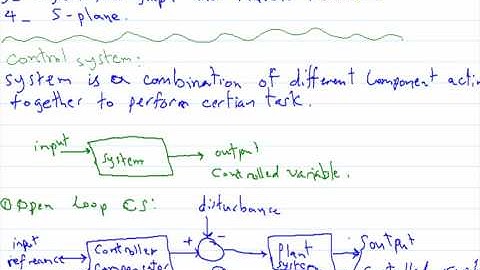 4_ S-plane.
Control system:
system is a combination of different Component actin
together to perform certian task.
input
system
output
Controlled variable.
① Open Loop CS:
disturbance
input
refreance
Controller
Compensator
+
-
Plant
system
output